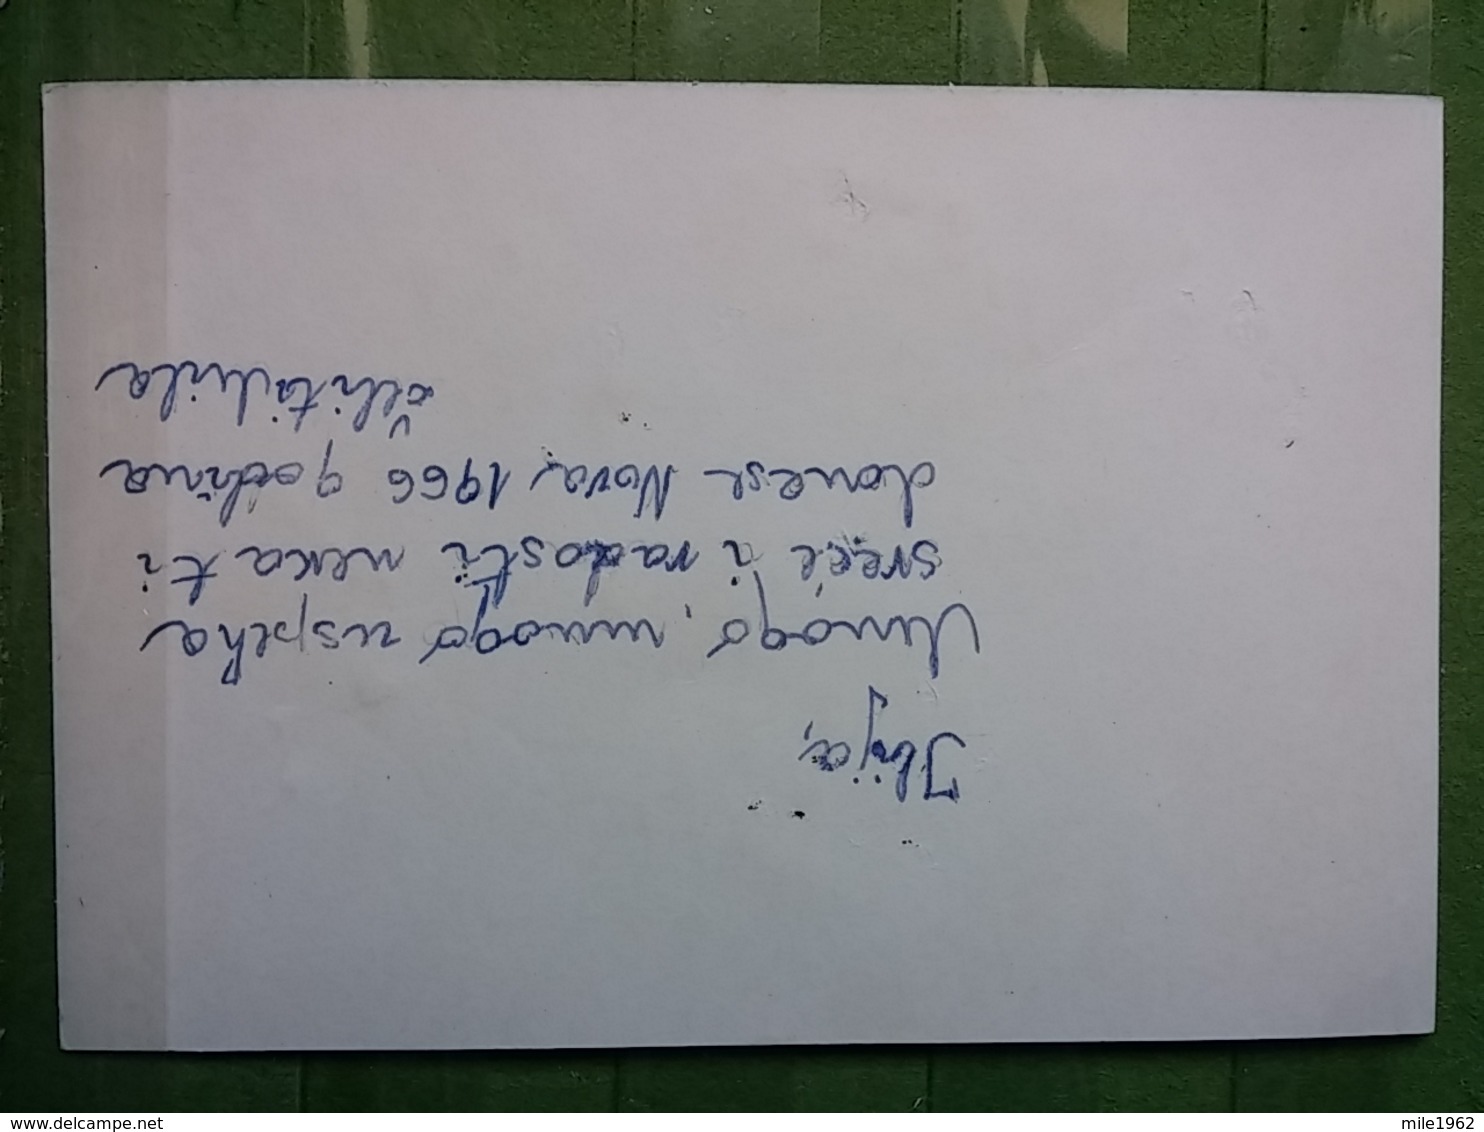 Ilija,
Mnogo, mnogo uspeha
sreće i radosti neka ti
donese Nova 1966 godina
želi ti Mila
delcampe.net
mile1962